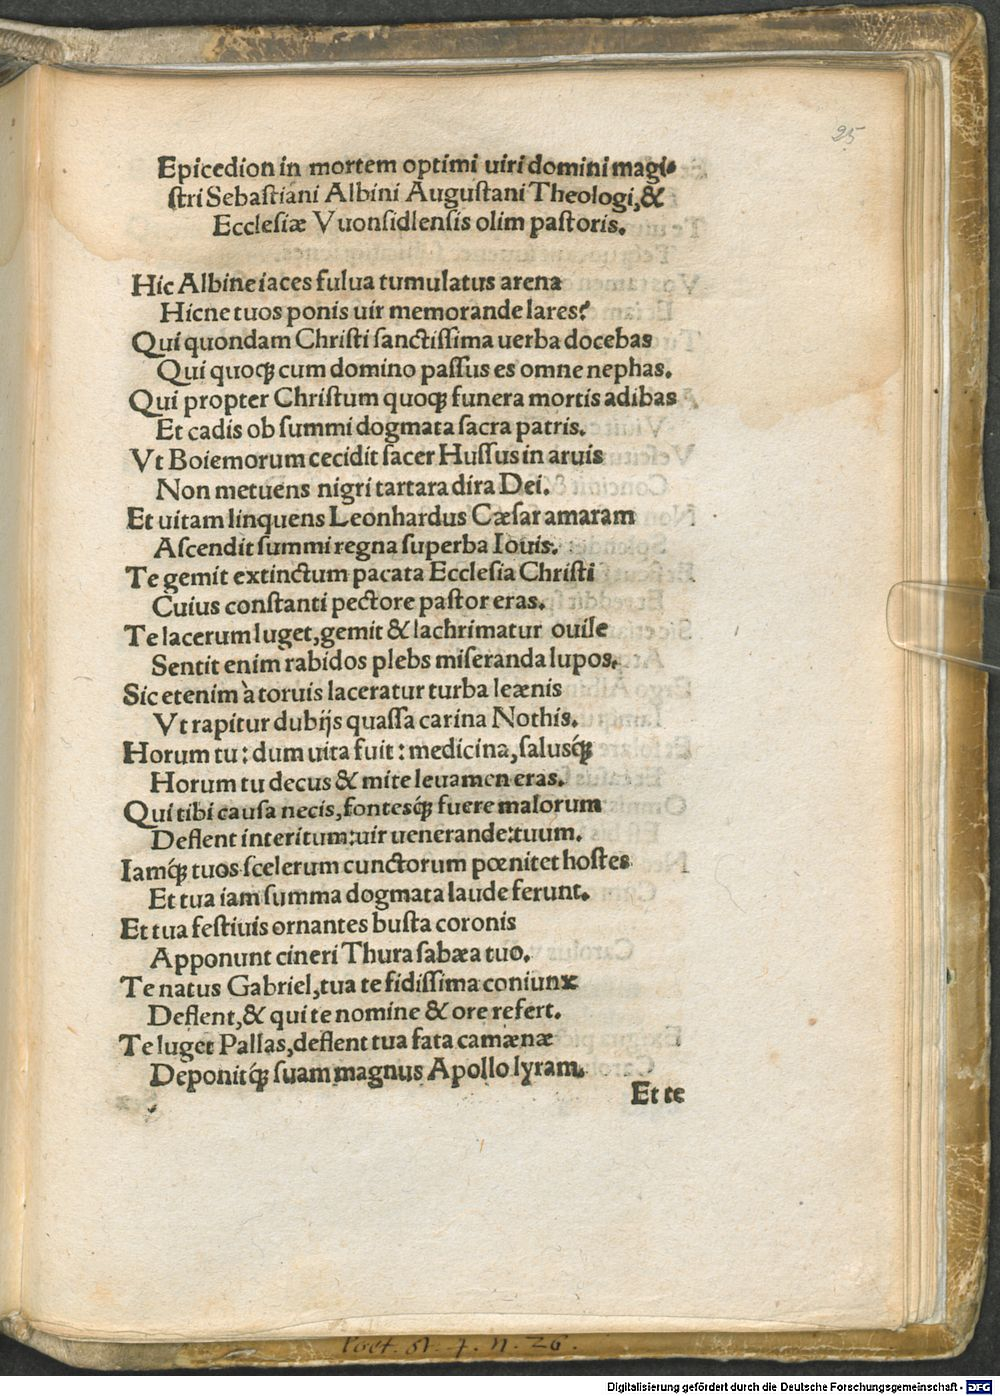 25
Epicedion in mortem optimi uiri domini magi-
stri Sebastiani Albini Augustani Theologi, &
Ecclesiæ Vuonsidlensis olim pastoris.
Hic Albine iaces fulua tumulatus arena
Hicne tuos ponis uir memorande lares?
Qui quondam Christi sanctissima uerba docebas
Qui quoqꝫ cum domino passus es omne nephas.
Qui propter Christum quoqꝫ funera mortis adibas
Et cadis ob summi dogmata sacra patris.
Vt Boiemorum cecidit sacer Hussus in aruis
Non metuens nigri tartara dira Dei.
Et uitam linquens Leonhardus Cæsar amaram
Ascendit summi regna superba Iouis.
Te gemit extinctum pacata Ecclesia Christi
Cuius constanti pectore pastor eras.
Te lacerum luget, gemit & lachrimatur ouile
Sentit enim rabidos plebs miseranda lupos.
Sic etenim à toruis laceratur turba leænis
Vt rapitur dubijs quassa carina Nothis.
Horum tu: dum uita fuit: medicina, salusq́ꝫ
Horum tu decus & mite leuamen eras.
Qui tibi causa necis, fontesq́ꝫ fuere malorum
Deflent interitum: uir uenerande: tuum.
Iamq́ꝫ tuos scelerum cunctorum pœnitet hostes
Et tua iam summa dogmata laude ferunt.
Et tua festiuis ornantes busta coronis
Apponunt cineri Thura sabæa tuo.
Te natus Gabriel, tua te fidissima coniunx
Deflent, & qui te nomine & ore refert.
Te luget Pallas, deflent tua fata camænæ
Deponitq́ꝫ suam magnus Apollo lyram.
Et te
Digitalisierung gefördert durch die Deutsche Forschungsgemeinschaft - DFG